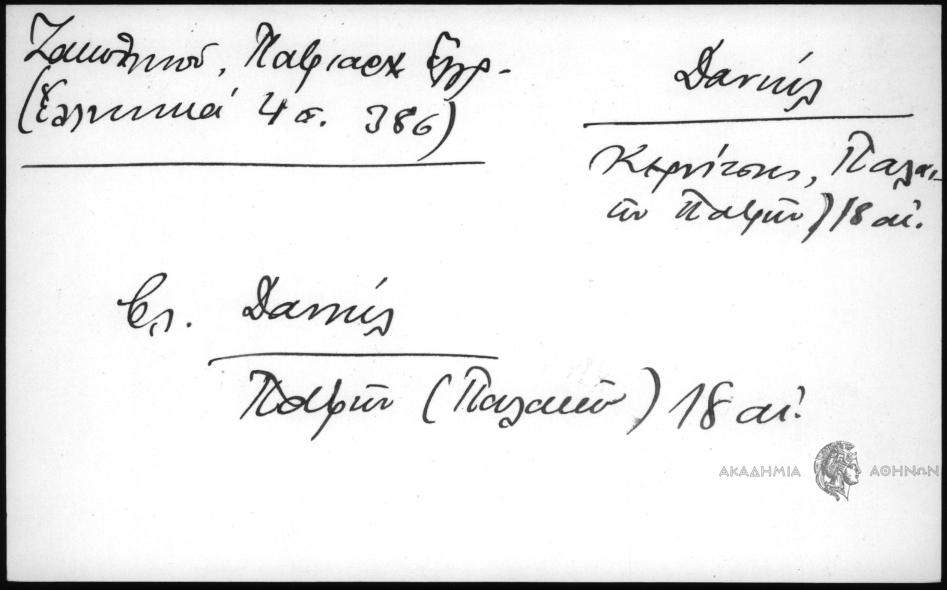 Ζακυθηνού, Πατριαρχ Έγγρ.
(Ἑλληνικά 4 σ. 386)
Δανιήλ
Κερνίτσης, Παλαι-
ῶν Πατρῶν) 18 αἰ.
βλ. Δανιήλ
Πατρῶν (Παλαιῶν) 18 αἰ.
ΑΚΑΔΗΜΙΑ ΑΘΗΝΩΝ